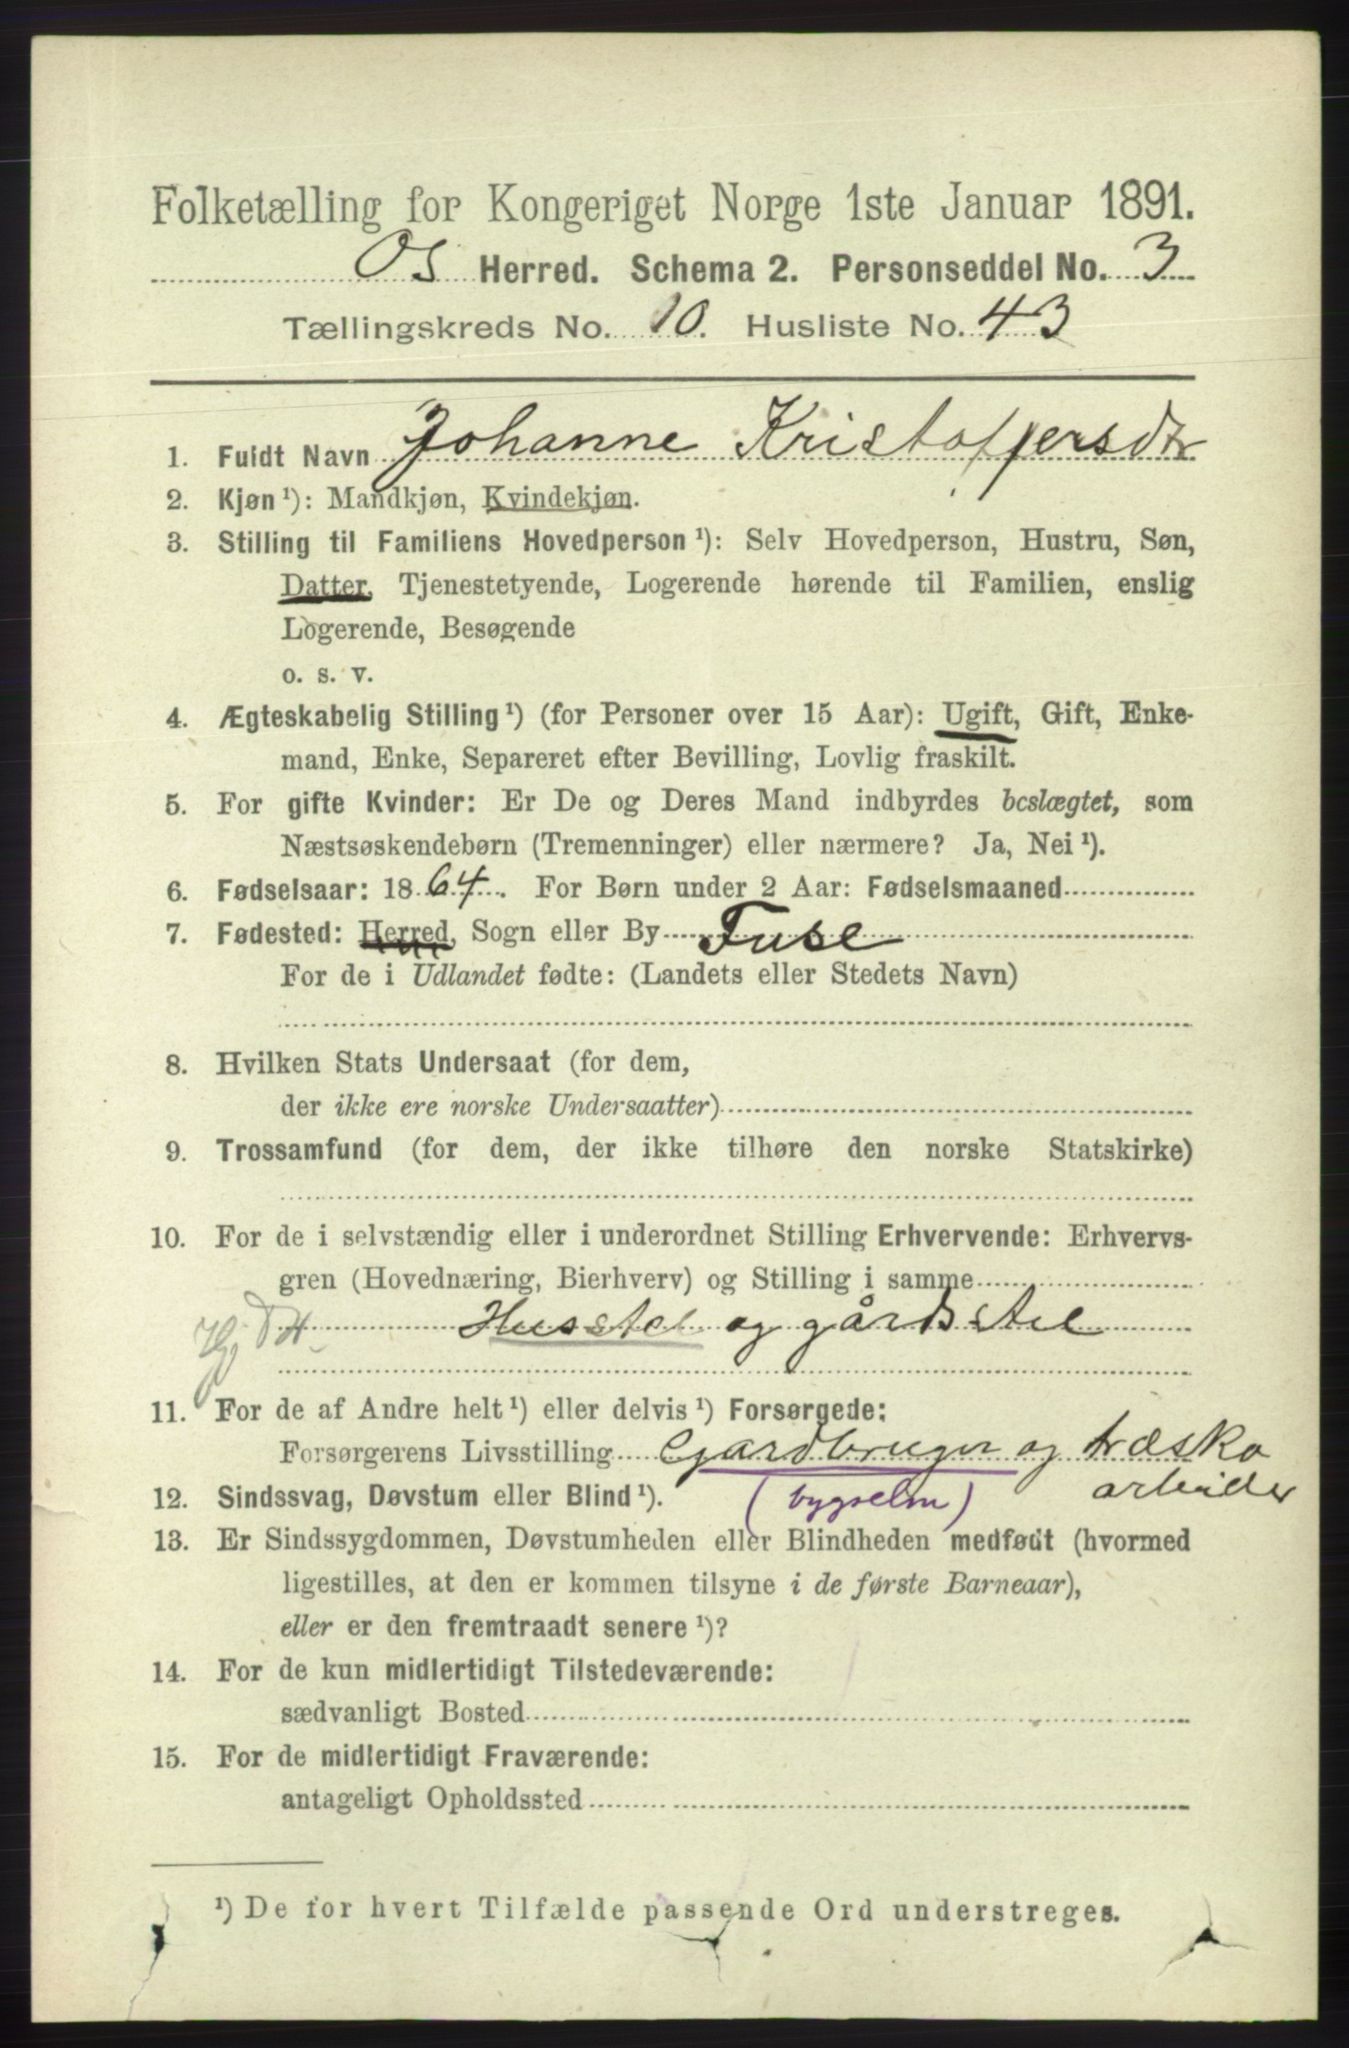 Folketælling for Kongeriget Norge 1ste Januar 1891.
Os Herred. Schema 2. Personseddel No. 3
Tællingskreds No. 10. Husliste No. 43
1. Fuldt Navn Johanne Kristoffersdtr
2. Kjøn ¹): Mandkjøn, Kvindekjøn.
3. Stilling til Familiens Hovedperson ¹): Selv Hovedperson, Hustru, Søn,
Datter, Tjenestetyende, Logerende hørende til Familien, enslig
Logerende, Besøgende
o. s. v.
4. Ægteskabelig Stilling ¹) (for Personer over 15 Aar): Ugift, Gift, Enke-
mand, Enke, Separeret efter Bevilling, Lovlig fraskilt.
5. For gifte Kvinder: Er De og Deres Mand indbyrdes beslægtet, som
Næstsøskendebørn (Tremenninger) eller nærmere? Ja, Nei ¹).
6. Fødselsaar: 1864. For Børn under 2 Aar: Fødselsmaaned
7. Fødested: Herred, Sogn eller By Fuse
For de i Udlandet fødte: (Landets eller Stedets Navn)
8. Hvilken Stats Undersaat (for dem,
der ikke ere norske Undersaatter)
9. Trossamfund (for dem, der ikke tilhøre den norske Statskirke)
10. For de i selvstændig eller i underordnet Stilling Erhvervende: Erhvervs-
gren (Hovednæring, Bierhverv) og Stilling i samme
Husstel og gårdsstel
11. For de af Andre helt ¹) eller delvis ¹) Forsørgede:
Forsørgerens Livsstilling Gardbruger og træsko
arbeider
12. Sindssvag, Døvstum eller Blind ¹). (bygselm)
13. Er Sindssygdommen, Døvstumheden eller Blindheden medfødt (hvormed
ligestilles, at den er kommen tilsyne i de første Barneaar),
eller er den fremtraadt senere ¹)?
14. For de kun midlertidigt Tilstedeværende:
sædvanligt Bosted
15. For de midlertidigt Fraværende:
antageligt Opholdssted
¹) De for hvert Tilfælde passende Ord understreges.